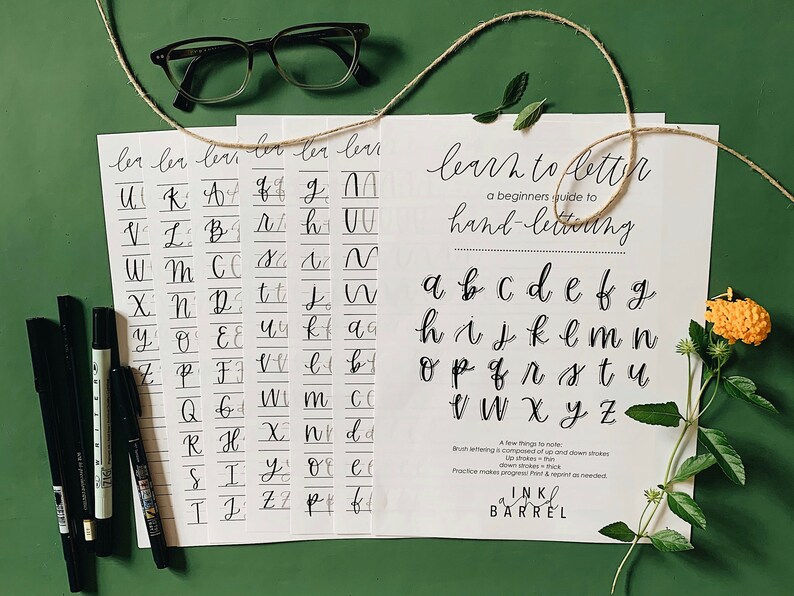 lea
U
V
W
X
Y
Z
lea
K
L
M
N
O
P
Q
R
S
T
lear
A
B
C
D
E
F
G
H
I
J
lea
q
r
s
t
u
v
w
x
y
z
lea
g
h
i
j
k
l
m
n
o
p
lear
a
b
c
d
e
f
learn to letter
a beginners guide to
hand-lettering
a b c d e f g
h i j k l m n
o p q r s t u
v w x y z
A few things to note:
Brush lettering is composed of up and down strokes
Up strokes = thin
down strokes = thick
Practice makes progress! Print & reprint as needed.
INK
and
BARREL
WRITER